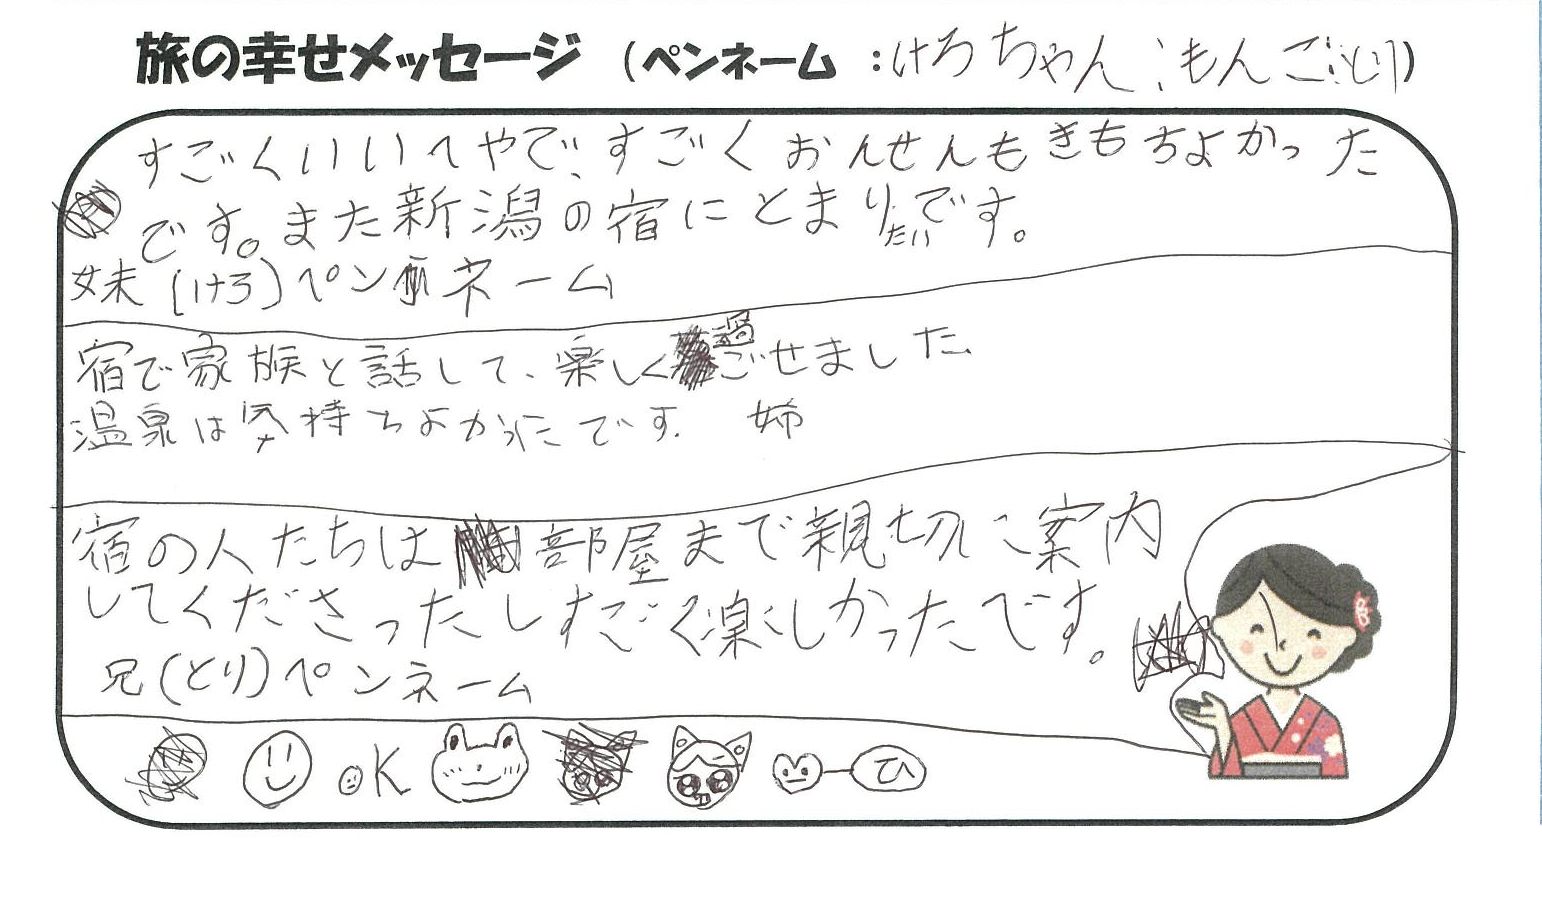 旅の幸せメッセージ (ペンネーム :けろちゃん:もんご:とり)
すごくいいへやで、すごくおんせんもきもちよかった
です。また新潟の宿にとまりたいです。
妹(けろ)ペンネーム
宿で家族と話して、楽しく過ごせました
温泉は気持ちよかったです. 姉
宿の人たちは部屋まで親切に案内
してくださったしすごく楽しかったです。
兄(とり)ペンネーム
OK
ひ